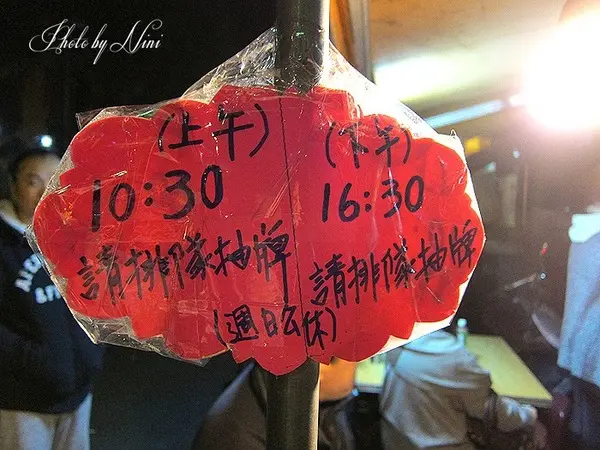 Photo by Nini
(上午)
10:30
請排隊抽牌
(下午)
16:30
請排隊抽牌
(週日公休)